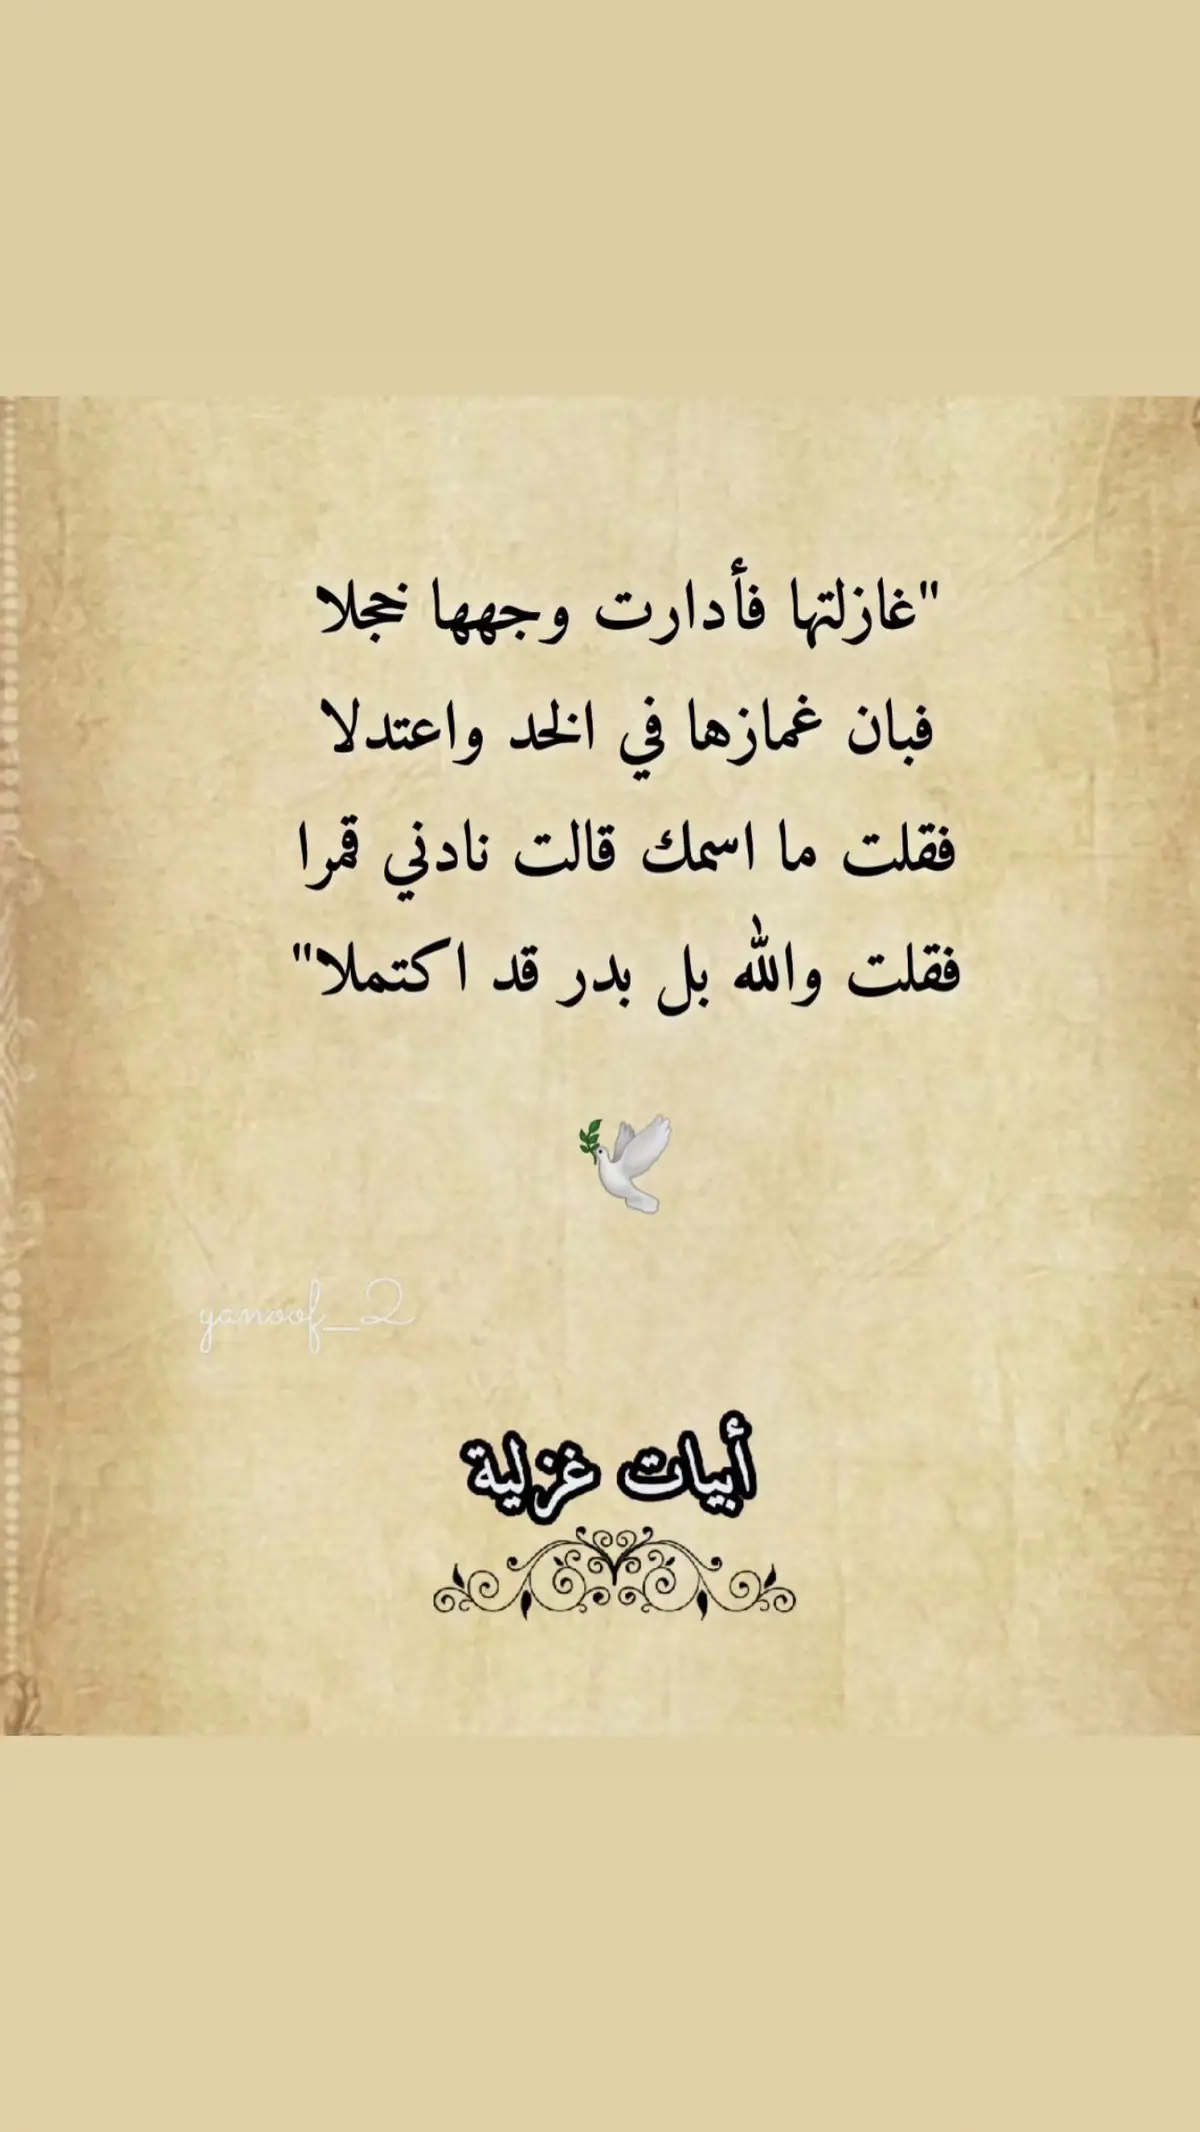 "غازلتها فأدارت وجهها خجلا
فبان غمازها في الخد واعتدلا
فقلت ما اسمك قالت نادني قمرا
فقلت والله بل بدر قد اكتملا"
yanoof_2
أبيات غزلية